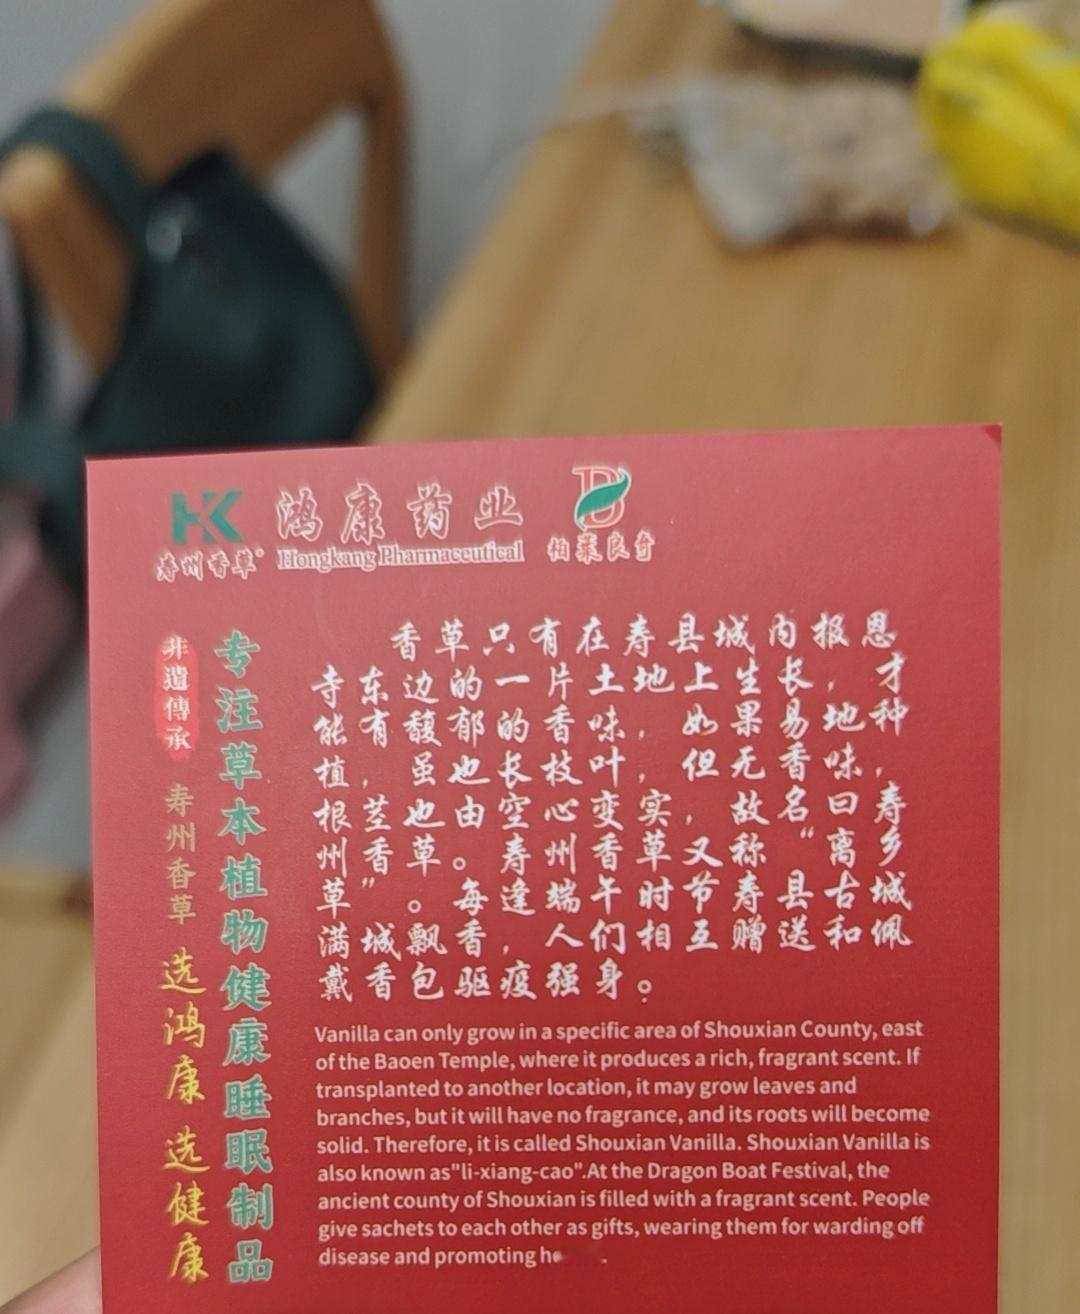 HK
寿州香草
鸿康药业
Hongkang Pharmaceutical
B
柏莱良奇
非遗傳承
寿州香草
选鸿康 选健康
专注草本植物健康睡眠制品
香草只有在寿县城内报恩
寺东边的一片土地上生长，才
能有馥郁的香味，如果易地种
植，虽也长枝叶，但无香味，
根茎也由空心变实，故名曰寿
州香草。寿州香草又称“离乡
草”。每逢端午时节寿县古城
满城飘香，人们相互赠送和佩
戴香包驱疫强身。
Vanilla can only grow in a specific area of Shouxian County, east
of the Baoen Temple, where it produces a rich, fragrant scent. If
transplanted to another location, it may grow leaves and
branches, but it will have no fragrance, and its roots will become
solid. Therefore, it is called Shouxian Vanilla. Shouxian Vanilla is
also known as"li-xiang-cao".At the Dragon Boat Festival, the
ancient county of Shouxian is filled with a fragrant scent. People
give sachets to each other as gifts, wearing them for warding off
disease and promoting